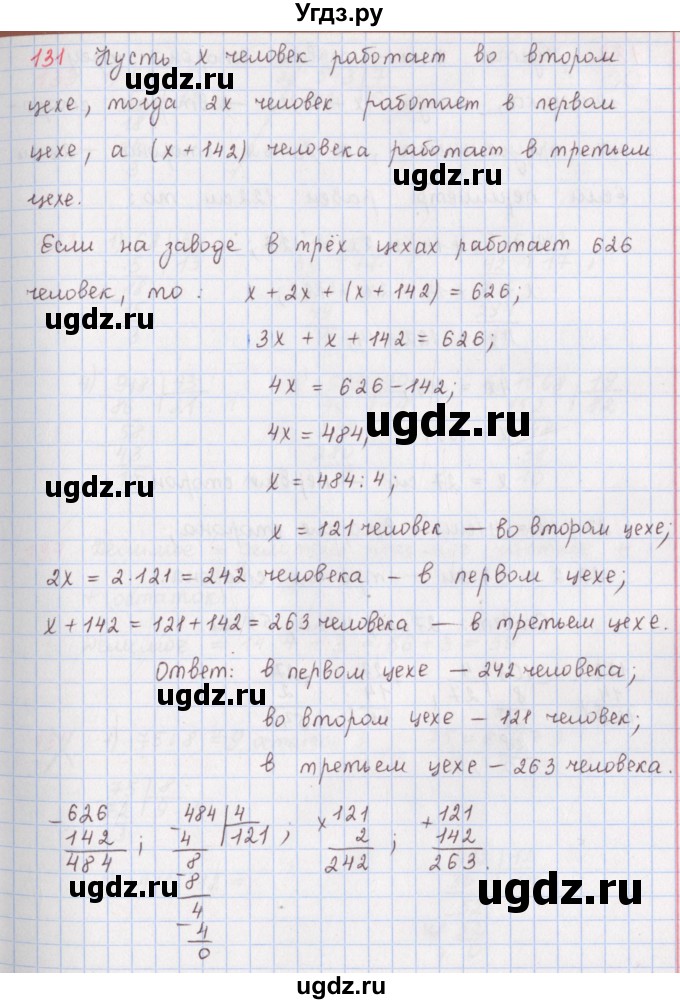 Угдз.ру
131 Пусть x человек работает во втором
ugdz.ru
цехе, тогда 2x человек работает в первом
цехе, а (x + 142) человека работает в третьем
ugdz.ru
цехе.
Если на заводе в трёх цехах работает 626
человек, то: x + 2x + (x + 142) = 626;
ugdz.ru
3x + x + 142 = 626;
4x = 626 - 142;
ugdz.ru
4x = 484;
x = 484 : 4;
ugdz.ru
x = 121 человек — во втором цехе;
2x = 2 · 121 = 242 человека - в первом цехе;
x + 142 = 121 + 142 = 263 человека — в третьем цехе.
ugdz.ru
Ответ: в первом цехе — 242 человека;
ugdz.ru
во втором цехе - 121 человек;
в третьем цехе - 263 человека.
- 626
142
484 ;
484 | 4
- 4 | 121 ;
8
- 8
4
- 4
0
× 121
2
242 ;
+ 121
142
263.
ugdz.ru
ugdz.ru
ugdz.ru
ugdz.ru
Угдз.ру